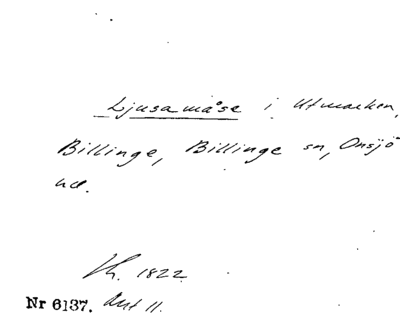 Ljusamåse i Utmarken,
Billinge, Billinge sn, Onsjö
hd.
1822
Nr 6137. Avt 11.